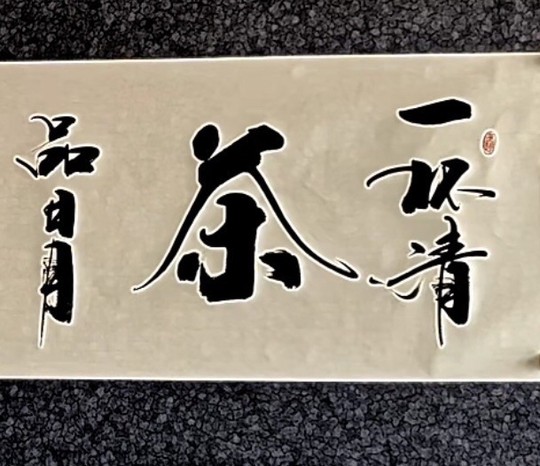 一杯清
茶
品日月